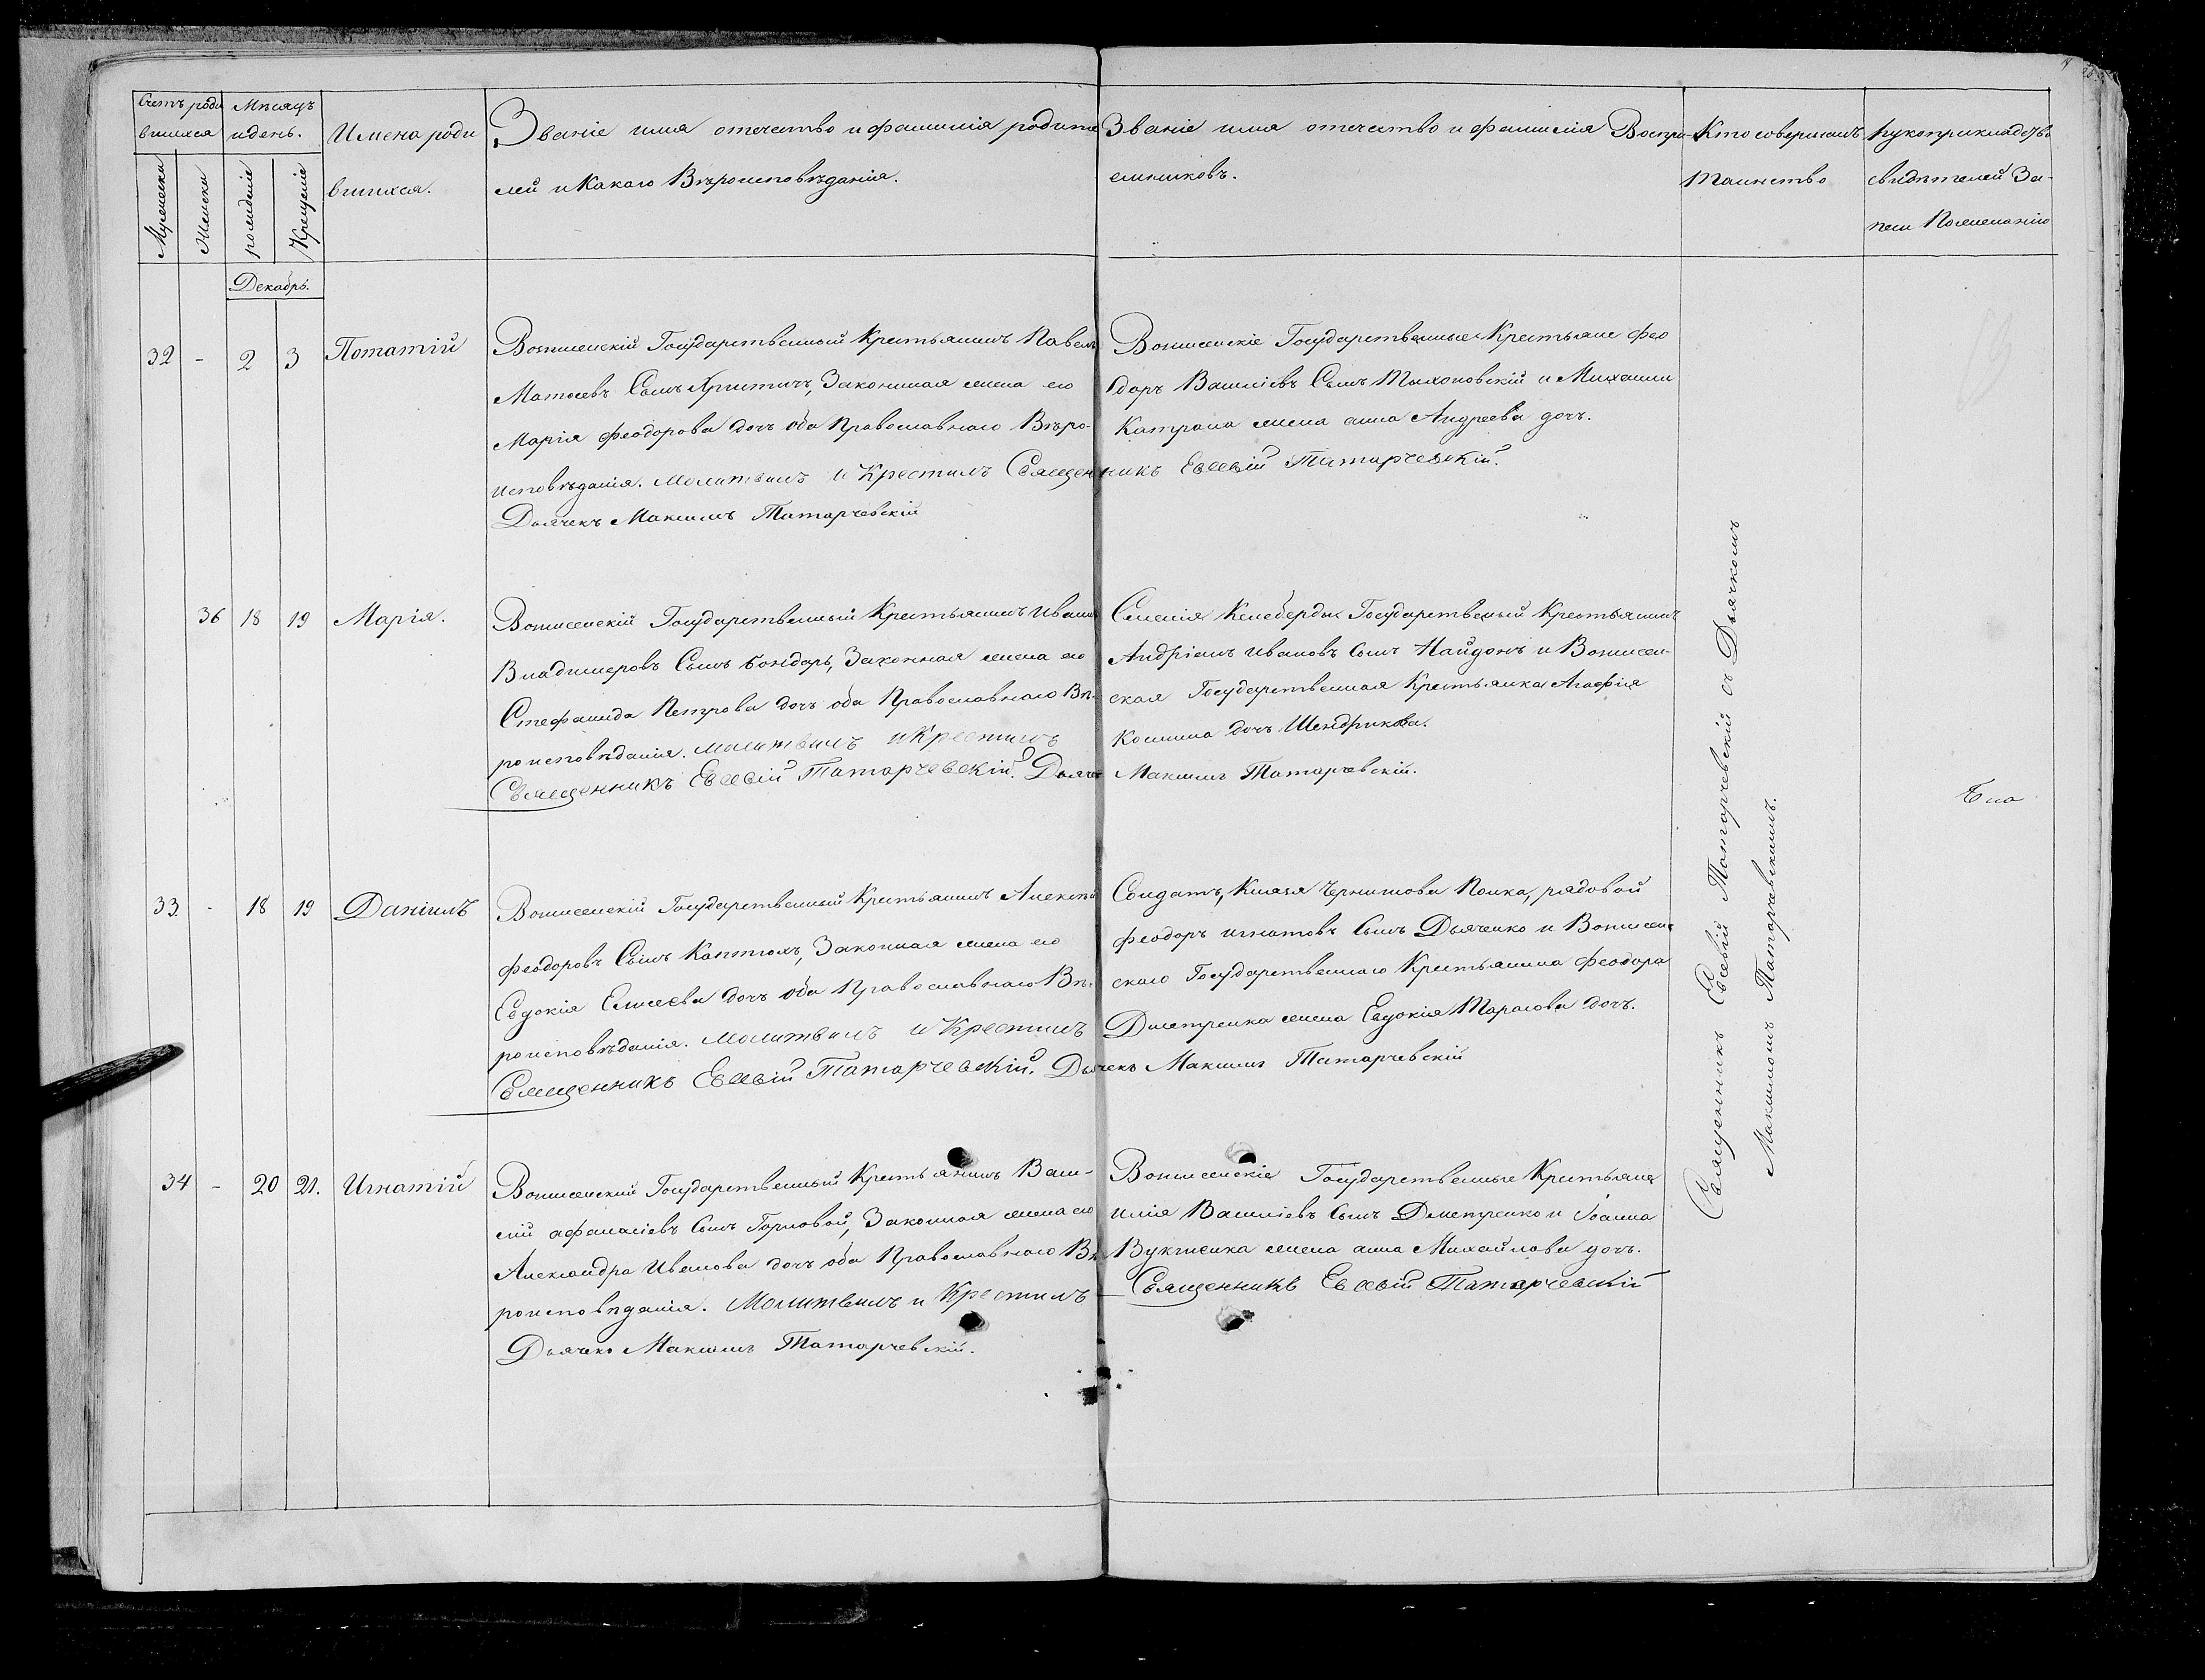 Счетъ роди
вшихся
Мѣсяцъ
и день.
Мужеска
Женска
рожденіе
Крещеніе
Имена роди
вшихся.
Званіе имя отечество и фамилія родите
лей и Какаго Вѣроисповѣданія.
Званіе имя отечество и фамилія Воспрі-
емниковъ.
Кто совершалъ
Таинство
рукоприкладство
свидѣтелей За-
писи По желанію
Декабрь.
32 - 2 3 Потатій
Государственный Крестьянинъ Павелъ
Матѳеевъ Сынъ Христичъ, Законная жена его
Марія Феодорова дочь оба Православнаго Вѣро-
исповѣданія. Молитвилъ и Крестилъ Священникъ Евсевій Татарчевскій.
Дьячекъ Максимъ Татарчевскій
Государственные Крестьяне Фео
доръ Василіевъ Сынъ Тихоновскій и Михаила
Катрана жена анна Андреева дочь.
36 18 19 Марія.
Государственный Крестьянинъ Иванъ
Владимеровъ Сынъ Бондарь, Законная жена его
Стефанида Петрова дочь оба Православнаго Вѣ-
роисповѣданія. Молитвилъ и Крестилъ
Священникъ Евсевій Татарчевскій. Дьячекъ Максимъ Татарчевскій.
Селенія Келеберды Государственный Крестьянинъ
Андріанъ Ивановъ Сынъ Найдонъ и
ская Государственная Крестьянка Агафія
Космина дочь Шендрикова.
33. - 18 19 Даніилъ
Государственный Крестьянинъ Алексѣй
Феодоровъ Сынъ Каптюхъ, Законная жена его
Евдокія Елисеева дочь оба Православнаго Вѣ-
роисповѣданія. Молитвилъ и Крестилъ
Священникъ Евсевій Татарчевскій. Дьячекъ Максимъ Татарчевскій
Солдатъ, Князя Чернишова Полка, рядовой
Феодоръ Игнатовъ Сынъ Дьяченко и
скаго Государственнаго Крестьянина Феодора
Дметренка жена Евдокія Тарасова дочь.
34 - 20 21. Игнатій
Государственный Крестьянинъ Васи-
лій афанасіевъ Сынъ Горловой, Законная жена его
Александра Иванова дочь оба Православнаго Вѣ
роисповѣданія. Молитвилъ и Крестилъ Священникъ Евсевій Татарчевскій
Дьячекъ Максимъ Татарчевскій.
Государственные Крестьяне
Илія Василіевъ Сынъ Дметренко и Іоанна
жена анна Михайлова дочь.
Священникъ Евсевій Татарчевскій съ Дьячкомъ
Максимомъ Татарчевскимъ.